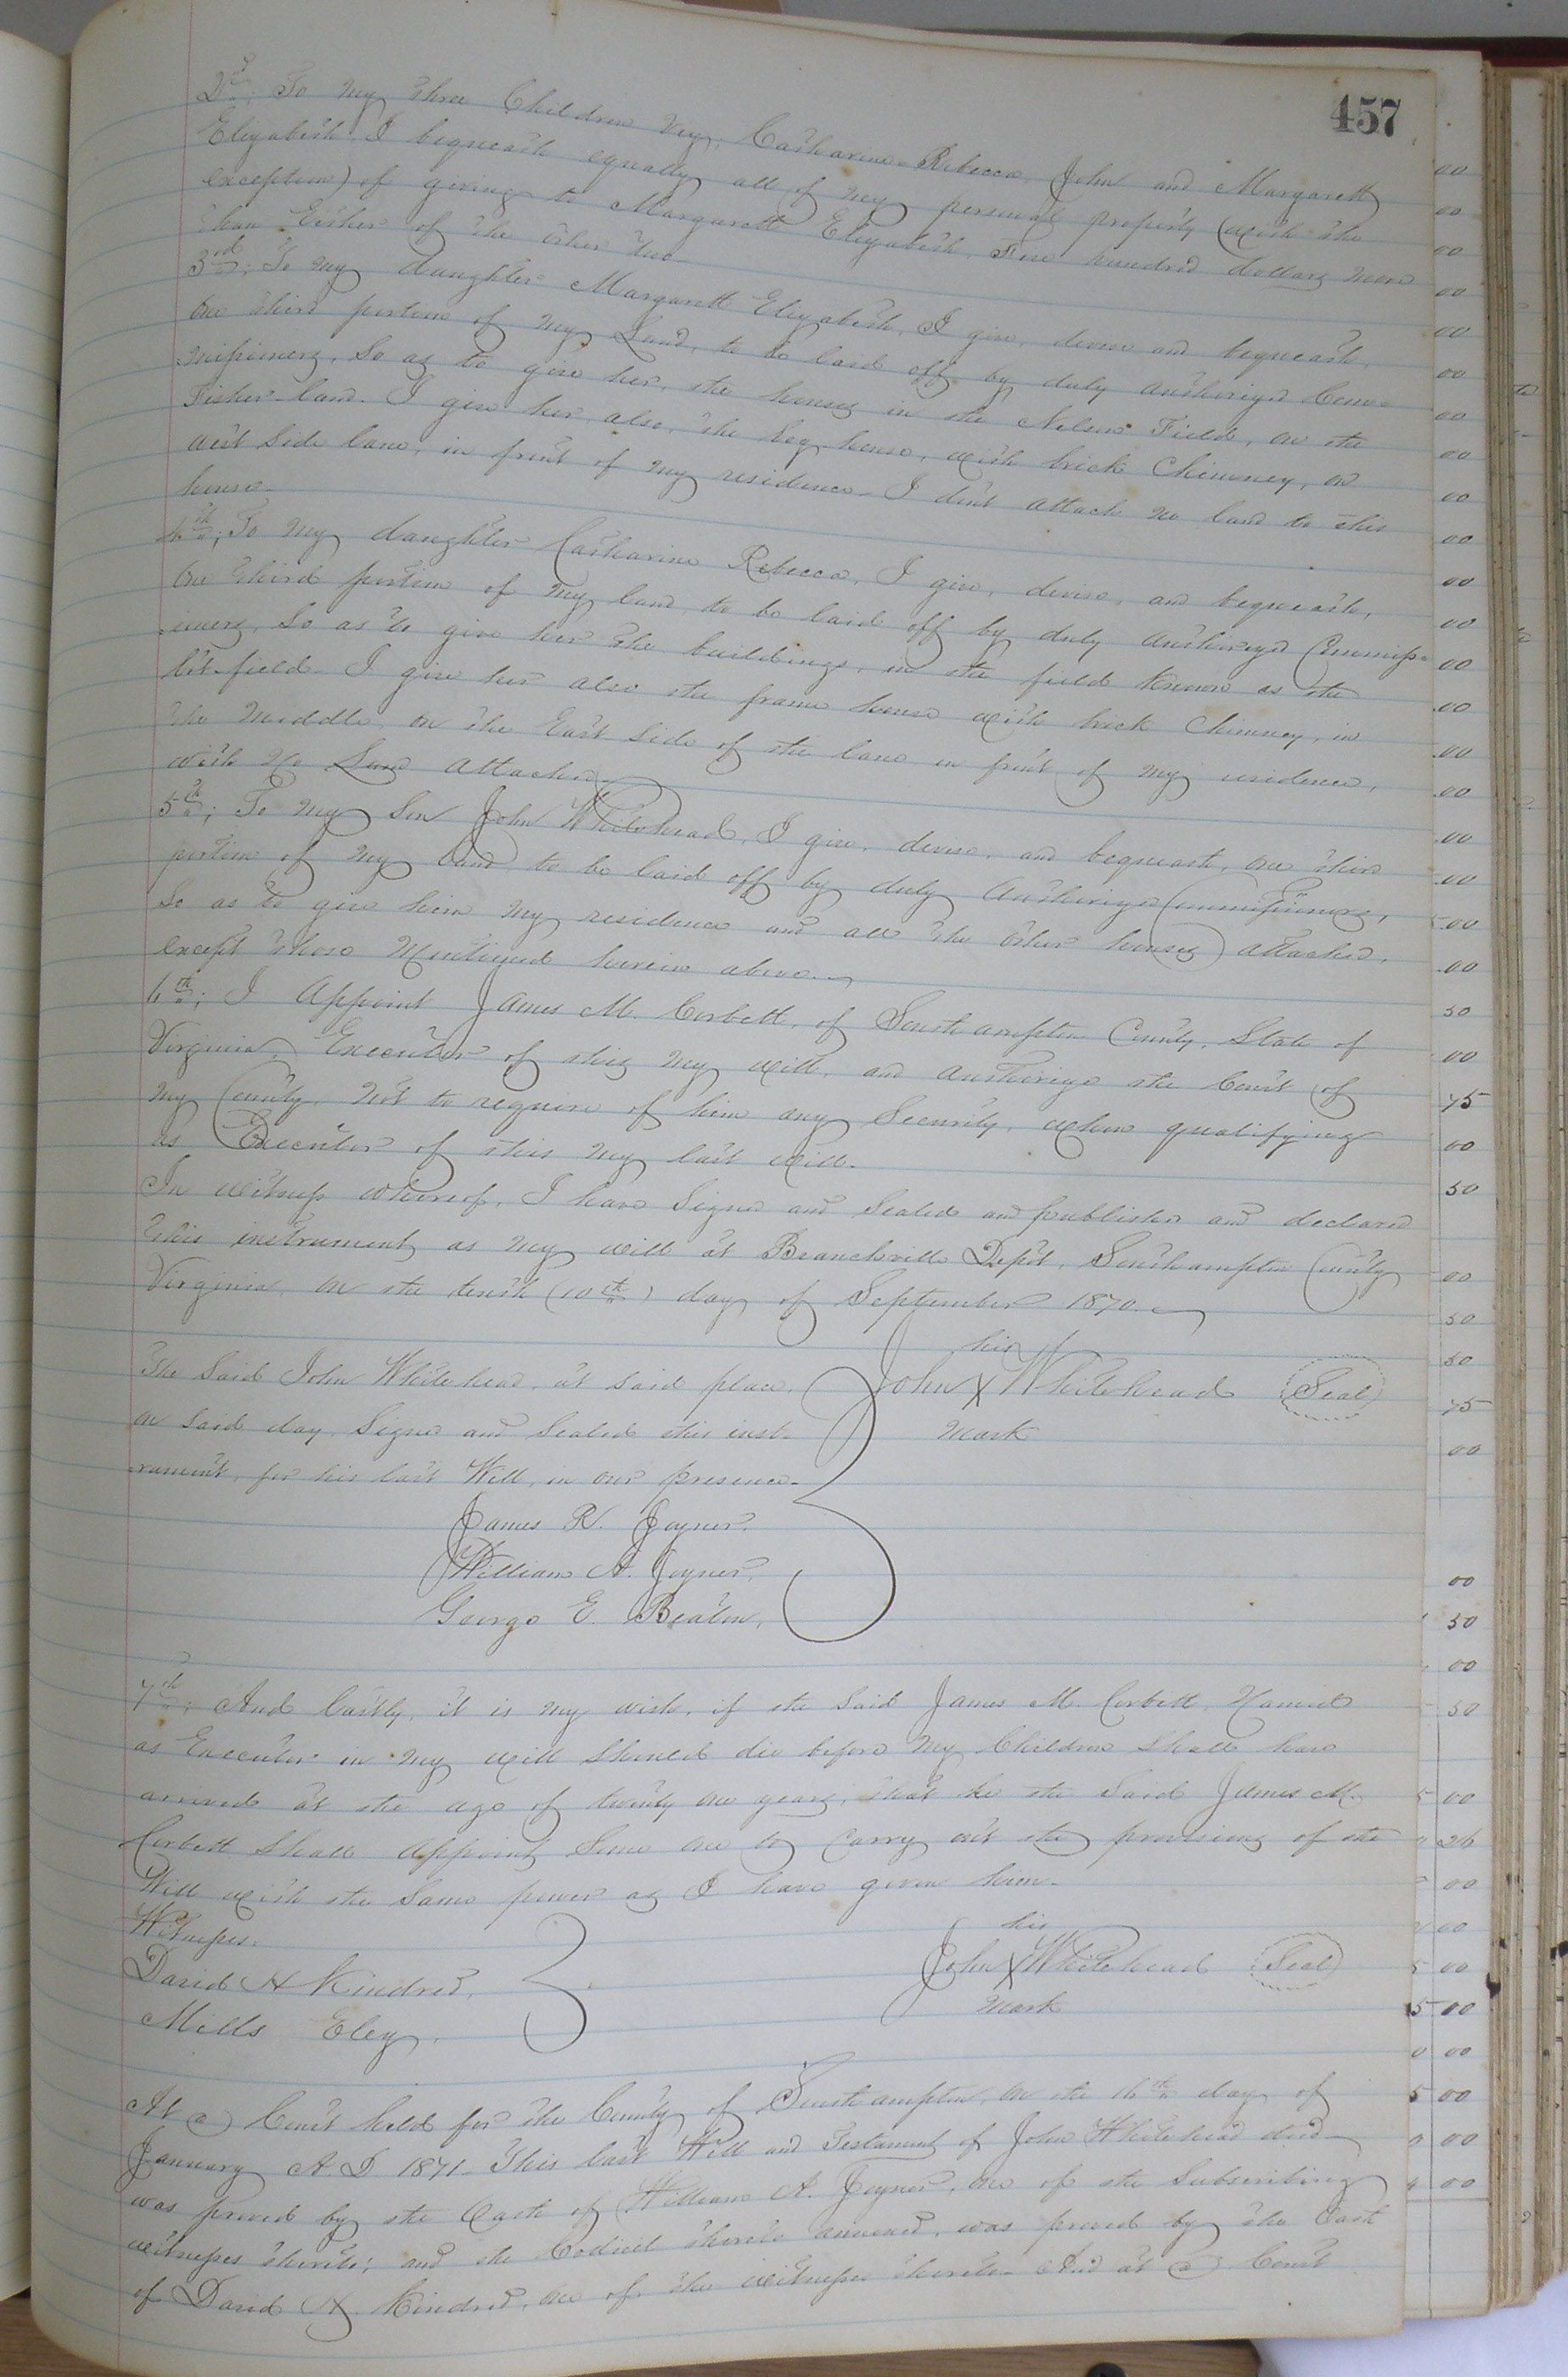 457
2d; To my three Children Viz, Catharine Rebecca, John and Margarett
Elizabeth, I bequeath equally all of my personal property (with the
exception) of giving to Margarett Elizabeth, Five hundred dollars more
than Either of the other two
3rd; To my daughter Margarett Elizabeth, I give, devise and bequeath,
One third portion of my Land, to be laid off by duly authorized Com=
missioners, So as to give her, the houses in the Nelson Field, on the
Fisher land. I give her, also, the log house, with brick Chimney, on
west Side lane, in front of my residence - I don't attach no land to this
house -
4th; To my daughter Catharine Rebecca, I give, devise, and bequeath,
One third portion of my land, to be laid off by duly authorized Commiss=
ioners, So as to give her the buildings, in the field known as the
field - I give her also the frame house with brick Chimney, in
the middle, on the East Side of the lane in front of my residence,
with No Land attached
5th; To my Son John Whitehead, I give, devise, and bequeath, one third
portion of my land to be laid off by duly Authorized Commissioners,
So as to give him my residence and all the other houses attached,
except those Mentioned herein above.
6th; I Appoint James M. Corbett, of Southampton County, State of
Virginia, Executor of this my will, and authorize the Court of
my County, Not to require of him any Security, when qualifying
as Executor of this my last will.
In witness whereof, I have Signed and Sealed and published and declared
this instrument, as my will at Branchville Depot, Southampton County
Virginia, on the tenth (10th) day of September 1870.
his
The Said John Whitehead, at said place, John X Whitehead (Seal)
on said day, Signed and Sealed this inst- mark
rument, for his last Will, in our presence -
James R. Joyner,
William A. Joyner,
George E. Beaton,
7th; And lastly, it is my wish, if the Said James M. Corbett, Named
as Executor in my will Should die before my Children Shall have
arrived at the age of twenty one years, that he the Said James M.
Corbett Shall Appoint Some one to Carry out the provisions of the
Will with the Same power as I have given him.
Witnesses. his
David H Kindred, John X Whitehead (Seal)
Mills Eley. mark
At a Court held for the County of Southampton, on the 16th day of
January A.D 1871 - This last Will and Testament of John Whitehead decd
was proved by the Oath of William A. Joyner, one of the Subscribing
witnesses thereto; and the Codicil thereto annexed, was proved by the Oath
of David H. Kindred, one of the witnesses thereto - And at a Court